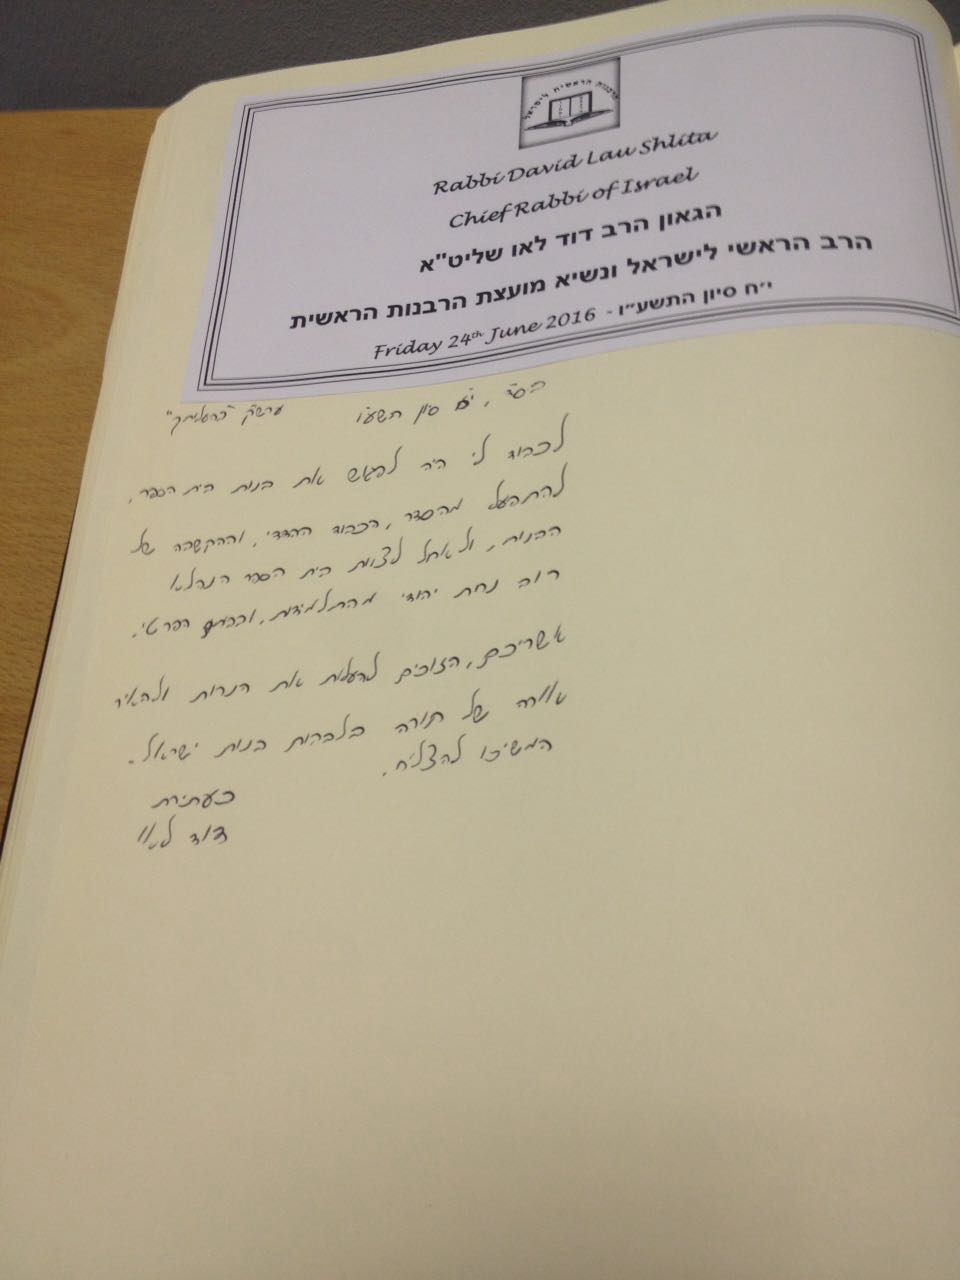 הרבנות הראשית לישראל
Rabbi David Lau Shlita
Chief Rabbi of Israel
הגאון הרב דוד לאו שליט"א
הרב הראשי לישראל ונשיא מועצת הרבנות הראשית
Friday 24th June 2016 - י״ח סיון התשע״ו
בס"ד, י"ח סיון תשע"ו ערש"ק "בהעלותך"
לכבוד לי היה לפגוש את בנות בית הספר,
להתפעל מהסדר, הכבוד ההדדי, וההקשבה של
הבנות, ולאחל לצוות בית הספר הנפלא
רוב נחת יהודי מהתלמידות, ובבית הפרטי.
אשריכם, הזוכים להעלות את הנרות ולהאיר
אורה של תורה בלבבות בנות ישראל.
המשיכו להצליח.
בעתירת
דוד לאו